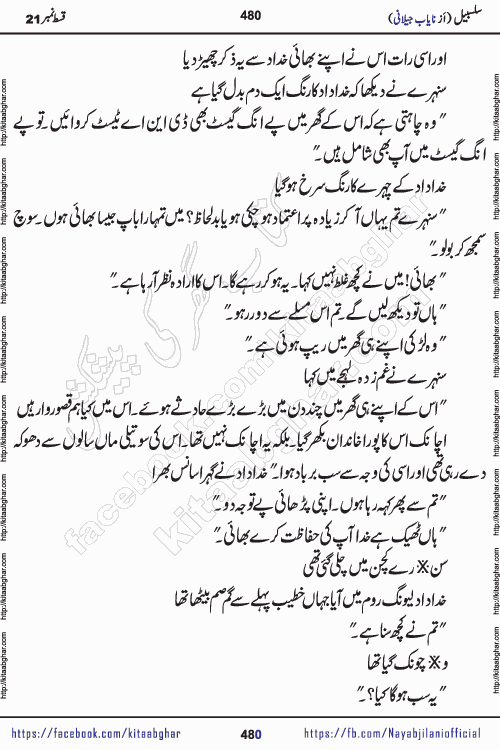 سلسبیل (از نایاب جیلانی)
480
قسط نمبر 21
اور اسی رات اس نے اپنے بھائی خداد سے یہ ذکر چھیڑ دیا
سنہرے نے دیکھا کہ خداداد کا رنگ ایک دم بدل گیا ہے
" وہ چاہتی ہے کہ اس کے گھر میں پے انگ گیسٹ بھی ڈی این اے ٹیسٹ کروائیں۔ تو پے
انگ گیسٹ میں آپ بھی شامل ہیں۔"
خداداد کے چہرے کا رنگ سرخ ہو گیا
" سنہرے تم یہاں آ کر زیادہ پر اعتماد ہو چکی ہو یا بدلحاظ؟ میں تمہارا باپ جیسا بھائی ہوں۔ سوچ
سمجھ کر بولو۔"
" بھائی! میں نے کچھ غلط نہیں کہا۔ یہ ہو کر رہے گا۔ اس کا ارادہ نظر آ رہا ہے۔"
" ہاں تو دیکھ لیں گے۔ تم اس مسلے سے دور رہو۔"
" وہ لڑکی اپنے ہی گھر میں ریپ ہوئی ہے۔"
سنہرے نے غم زدہ لہجے میں کہا
" اس کے اپنے ہی گھر میں چند دن میں بڑے بڑے حادثے ہوئے۔ اس میں کیا ہم قصوروار ہیں
اچانک اس کا پورا خاندان بکھر گیا۔ بلکہ یہ اچانک نہیں تھا۔ اس کی سوتیلی ماں سالوں سے دھوکہ
دے رہی تھی اور اسی کی وجہ سے سب برباد ہوا۔" خداداد نے گہرا سانس بھرا
" تم سے پھر کہہ رہا ہوں۔ اپنی پڑھائی پے توجہ دو۔"
" ہاں ٹھیک ہے خدا آپ کی حفاظت کرے بھائی۔"
سن※رے کچن میں چلی گئی تھی
خداداد لیونگ روم میں آیا جہاں خطیب پہلے سے گم صم بیٹھا تھا
" تم نے کچھ سنا ہے۔"
و※ چونک گیا تھا
" یہ سب ہو گا کیا؟۔"
کتاب گھر کی پیشکش
kitaabghar.com
facebook.com/kitaabghar
http://kitaabghar.com
https://facebook.com/kitaabghar
480
https://fb.com/Nayabjilaniofficial